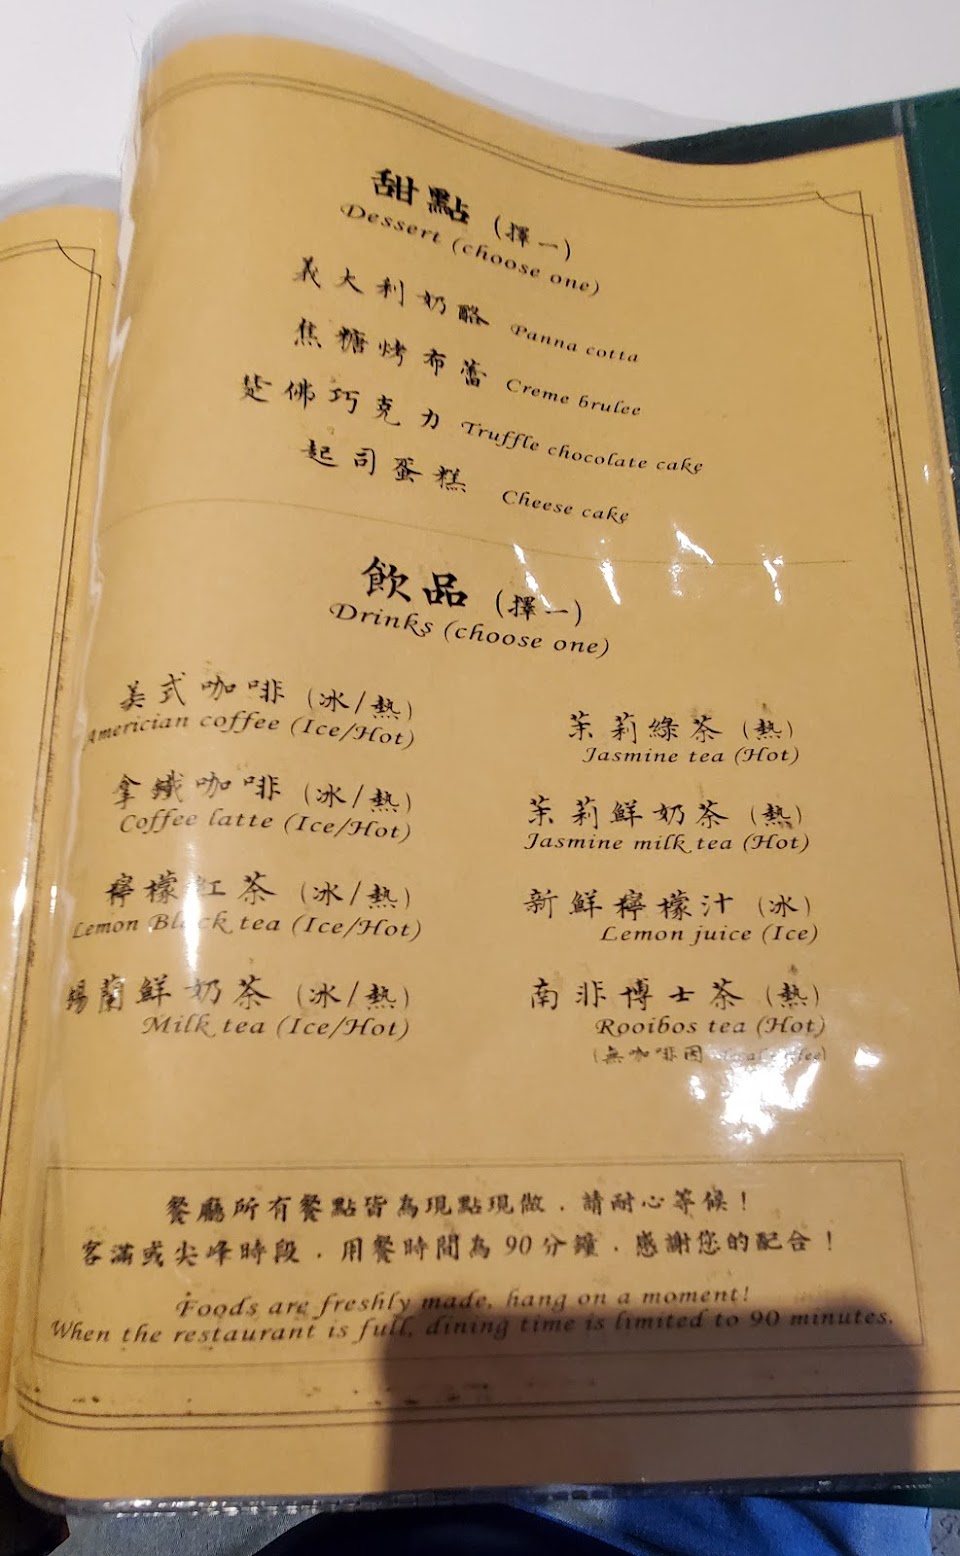 甜點 (擇一)
Dessert (choose one)
義大利奶酪 Panna cotta
焦糖烤布蕾 Creme brulee
楚佛巧克力 Truffle chocolate cake
起司蛋糕 Cheese cake
飲品 (擇一)
Drinks (choose one)
美式咖啡 (冰/熱)
Americian coffee (Ice/Hot)
拿鐵咖啡 (冰/熱)
Coffee latte (Ice/Hot)
檸檬紅茶 (冰/熱)
Lemon Black tea (Ice/Hot)
錫蘭鮮奶茶 (冰/熱)
Milk tea (Ice/Hot)
茉莉綠茶 (熱)
Jasmine tea (Hot)
茉莉鮮奶茶 (熱)
Jasmine milk tea (Hot)
新鮮檸檬汁 (冰)
Lemon juice (Ice)
南非博士茶 (熱)
Rooibos tea (Hot)
(無咖啡因
餐廳所有餐點皆為現點現做．請耐心等候！
客滿或尖峰時段．用餐時間為90分鐘．感謝您的配合！
Foods are freshly made, hang on a moment!
When the restaurant is full, dining time is limited to 90 minutes.